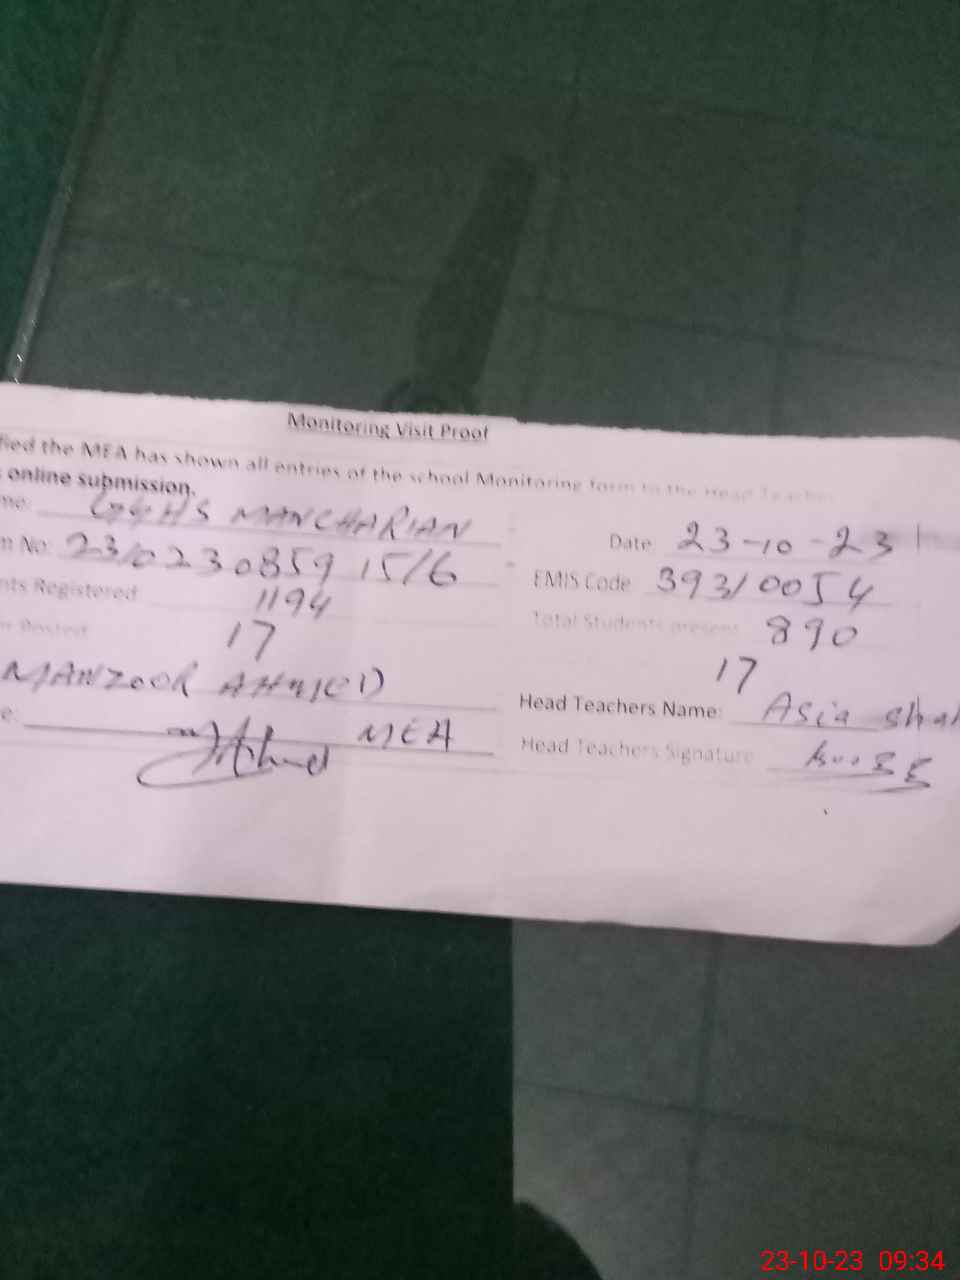 Monitoring Visit Proof
fied the MEA has shown all entries of the school Monitoring form to the Head Teacher
online submission.
me: GGHS MANCHARIAN Date 23-10-23
n No: 23102308591516 EMIS Code 39310054
nts Registered 1194 Total Students present 890
Posted 17 17
MANZOOR AHMED Head Teachers Name: Asia shah
e: MEA Head Teachers Signature
23-10-23 09:34